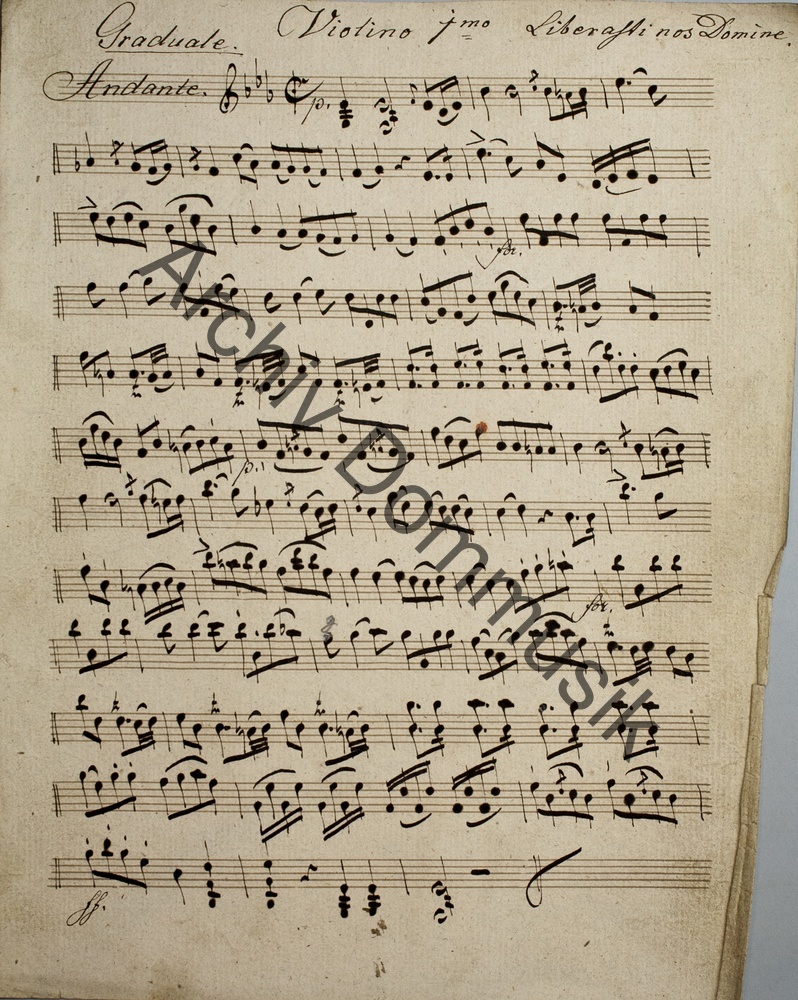 Graduale. Violino 1mo Liberasti nos Domine.
Andante. p.
for.
p.
for.
ff.
Archiv Dommusik